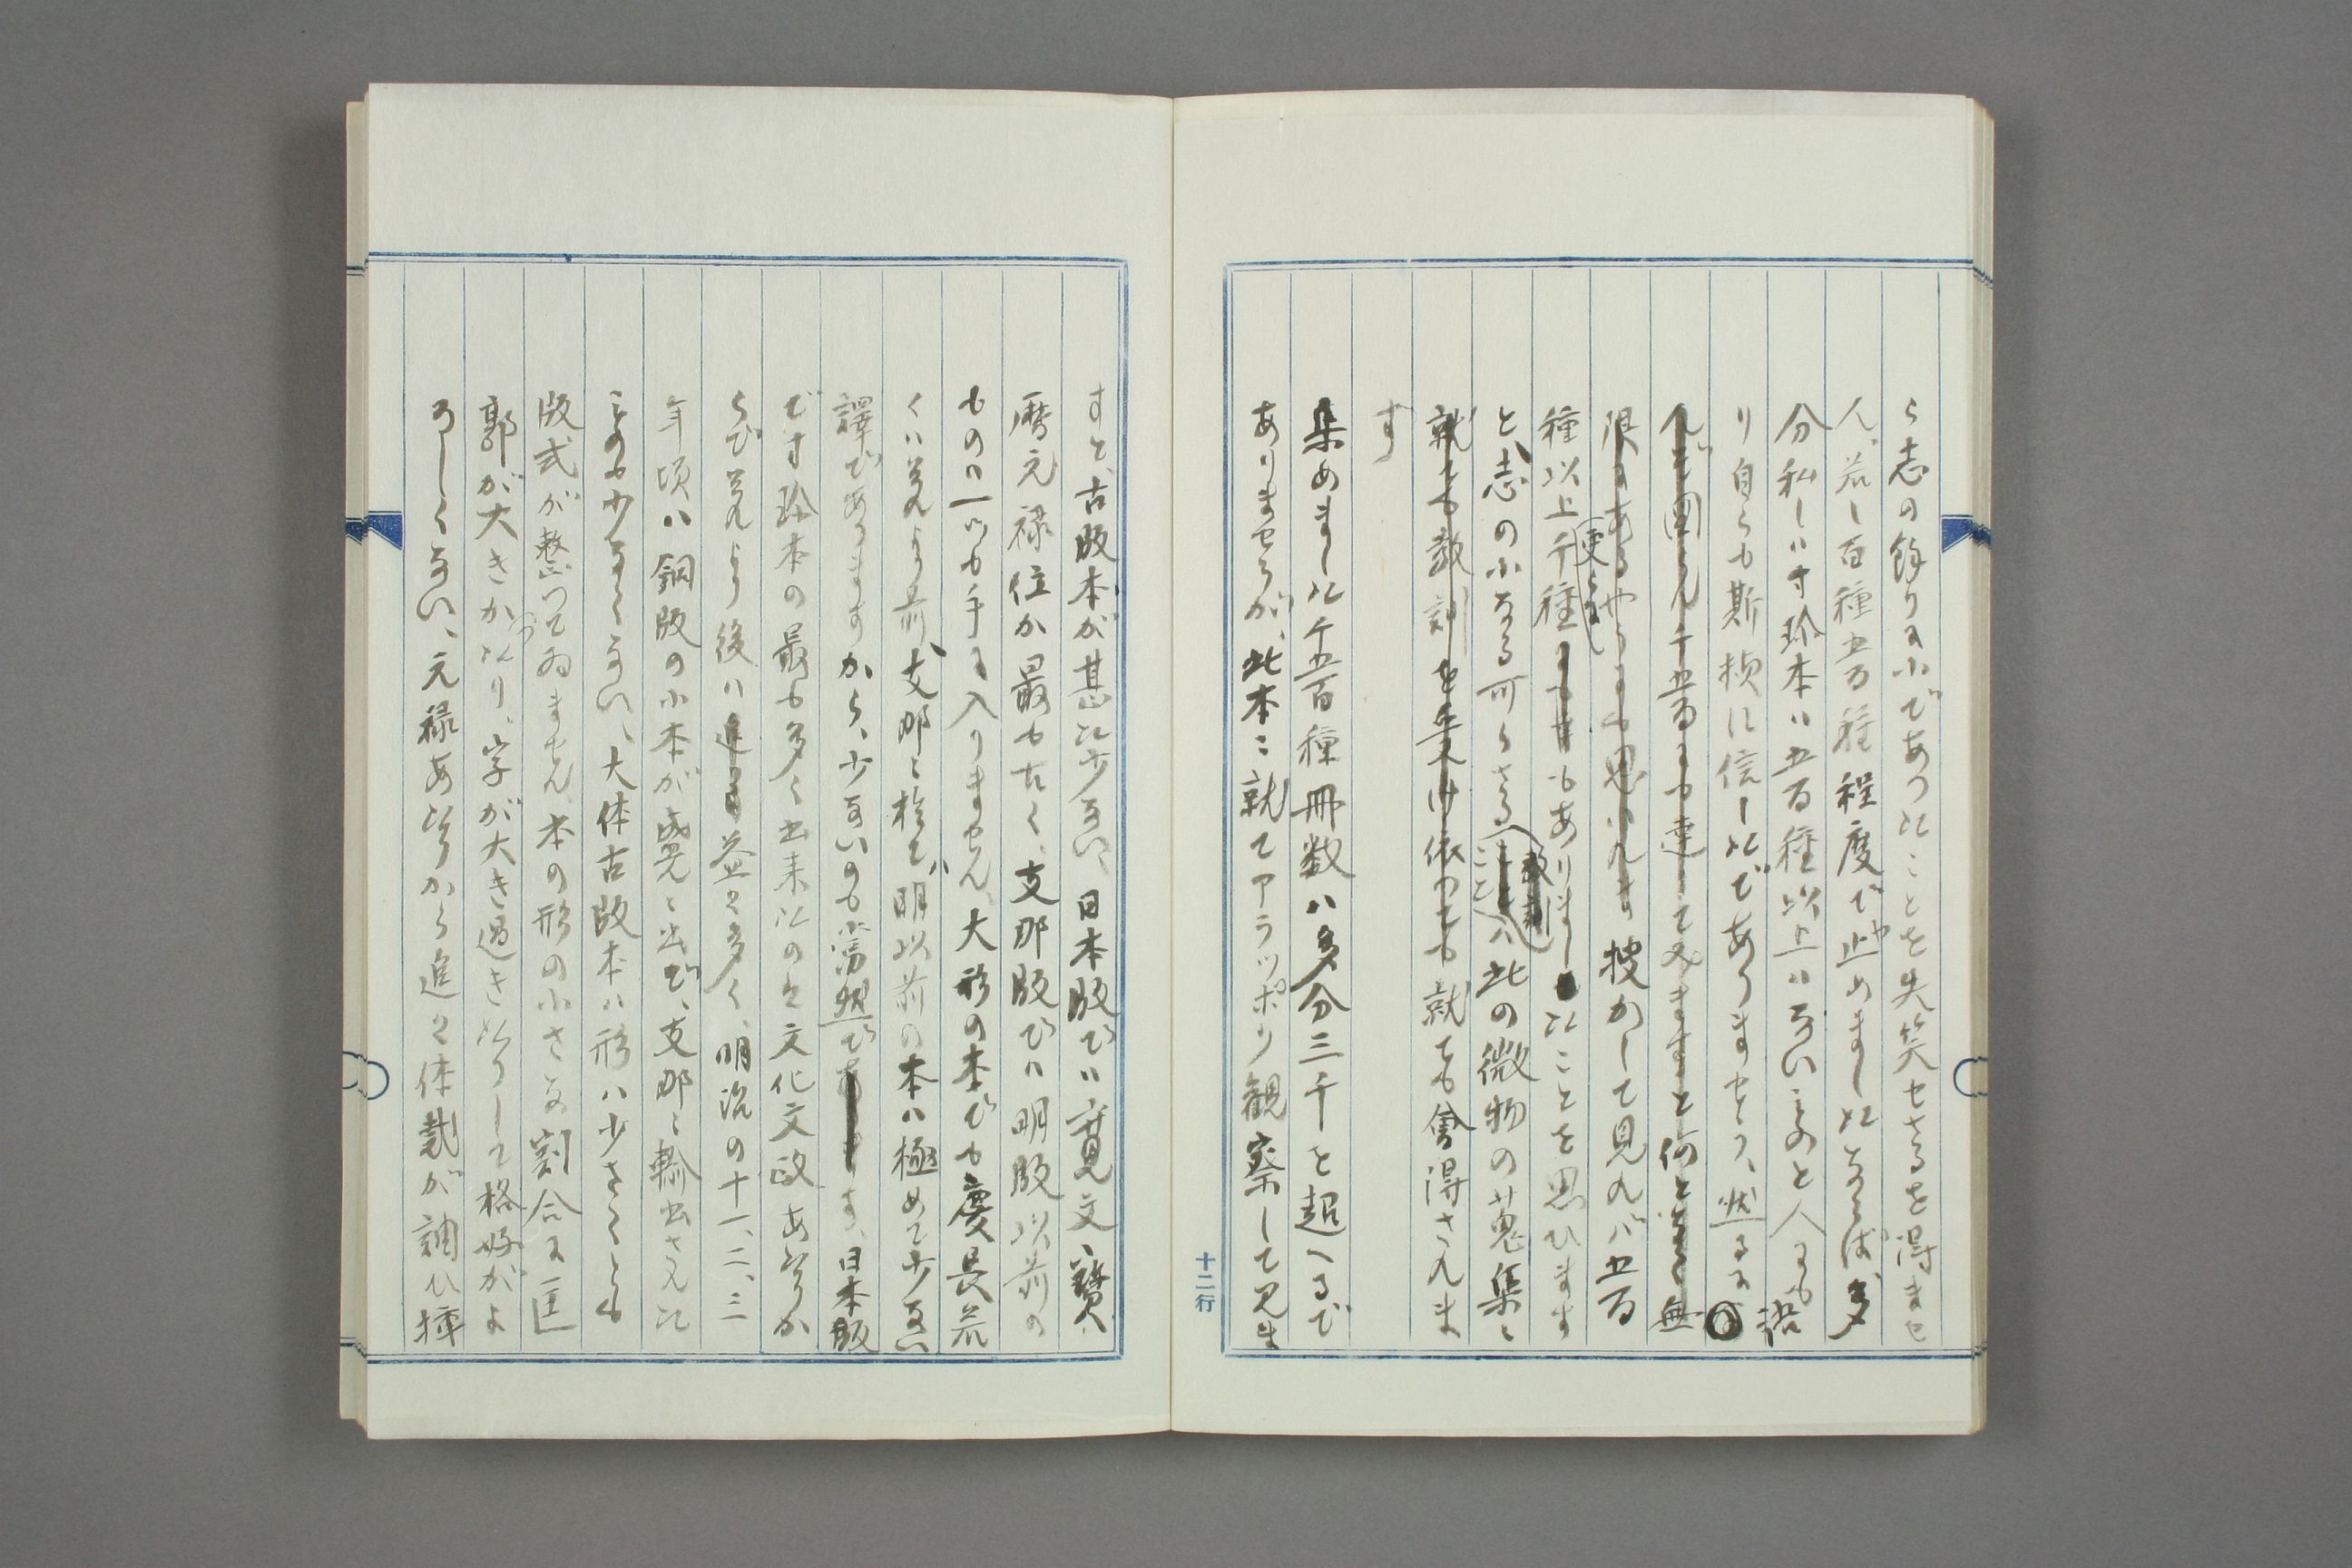 ら志の餘りに小であつたことを失笑せざるを得ませ
ん、若し百種五百種程度で止めましたならば多
分私しは寸珍本は五百種以上はないものと人にも語
り自らも斯様に信じたであらませう、然るに
んぞ図らん千五百にも達してみますと何となく無
限にあるやうにも思はれます捜かして見れば五百
種以上千種にてもありましたことを思ひます
更らに
と、志の小なる可らざることハ此の微物の蒐集に
教訓
就ても教訓を受け依つても就ても會得されま
す
集めました千五百種冊数ハ多分三千を超へるで
ありませうが、此本に就てアラッポリ観察して見ま
十二行
すと、古版本が甚た少ない、日本版でハ寛文、寳
暦元禄位か最も古く、支那版でハ明版以前の
ものハ一ツも手に入りません、大形の本でも慶長若
くハ夫れより前、支那に於て、明以前の本ハ極めて少ない
譯であります から、少ないのも當然であります、日本版
です珍本の最も多く出来たのは文化文政あたりか
らで夫れより後ハ益々多く、明治の十一、二、三
年頃ハ銅版の小本が盛んに出で、支那に輸出された
ものも少なくない、大体古版本ハ形ハ少さくとも
版式が整つてゐません、本の形の小さな割合に匡
郭が大きかつたり、字が大き過きたりして格好がよ
ろしくない、元禄あたりから進々体裁が調ひ挿